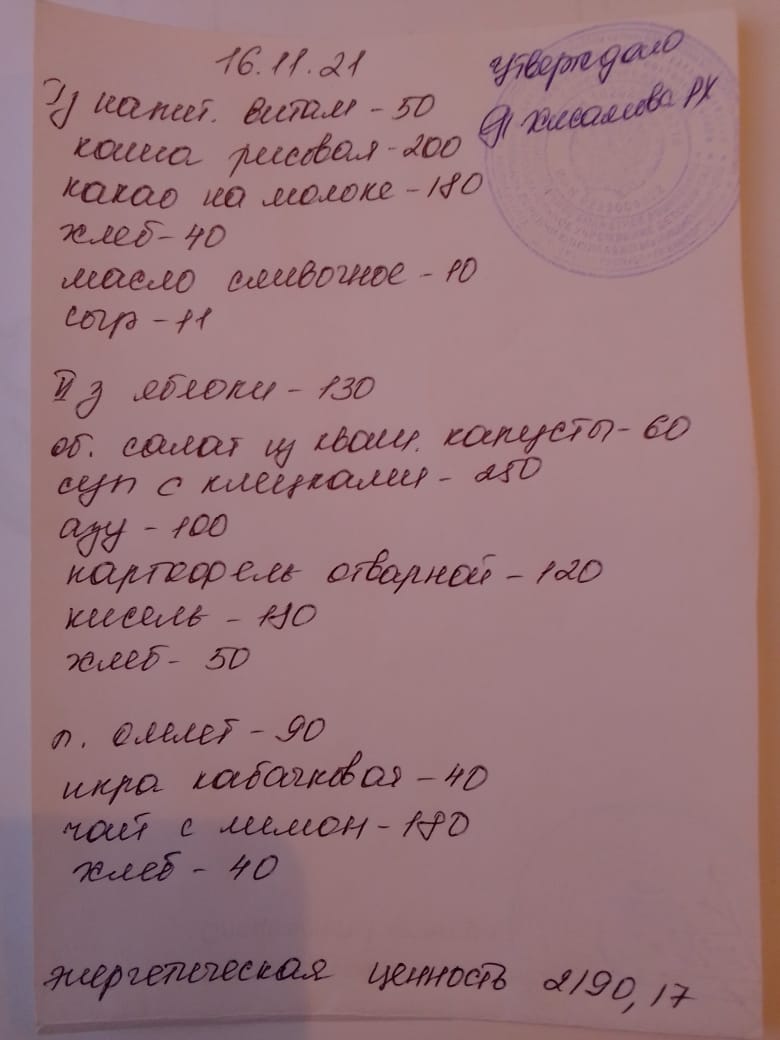 16.11.21
Утверждаю
Хисамова РХ
I з напит. витам - 50
каша рисовая - 200
какао на молоке - 180
хлеб - 40
масло сливочное - 10
сыр - 11
II з яблоки - 130
об. салат из кваш. капусты - 60
суп с клецками - 250
азу - 100
картофель отварной - 120
кисель - 180
хлеб - 50
п. омлет - 90
икра кабачковая - 40
чай с лимон - 180
хлеб - 40
энергетическая ценность 2190,17